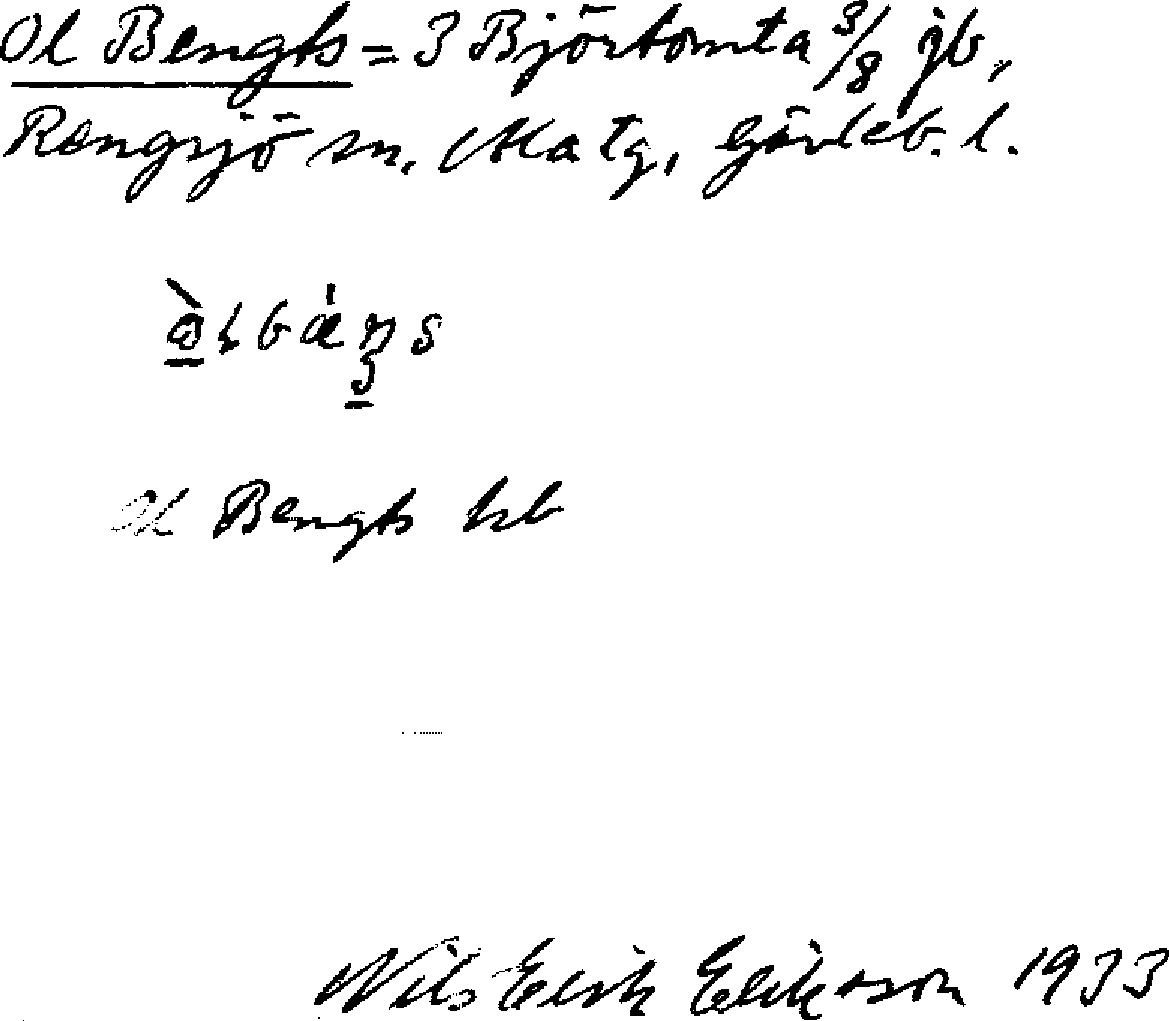 Ol Bengts = 3 Björtomta 3/8 jb,
Rengsjö sn, Ala tg, Gävleb. l.
Ol Bengts kb
Nils Erik Eriksson 1933